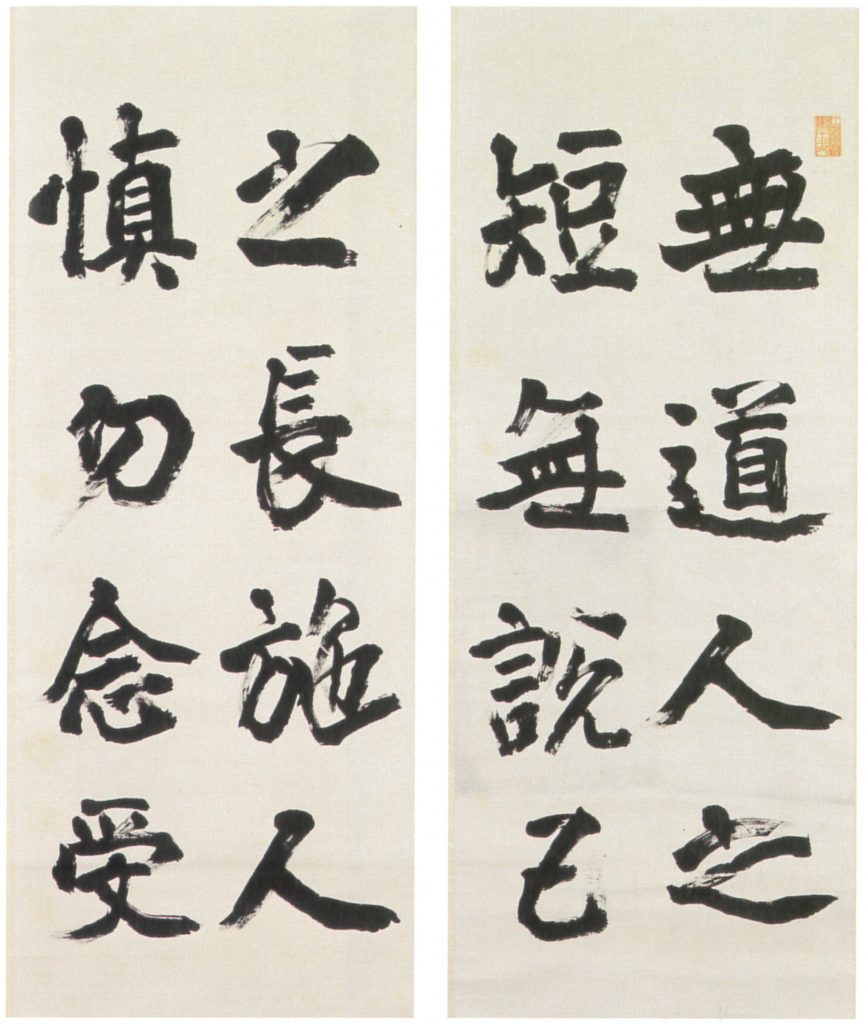 無道人之
短無說己
之長施人
慎勿念受